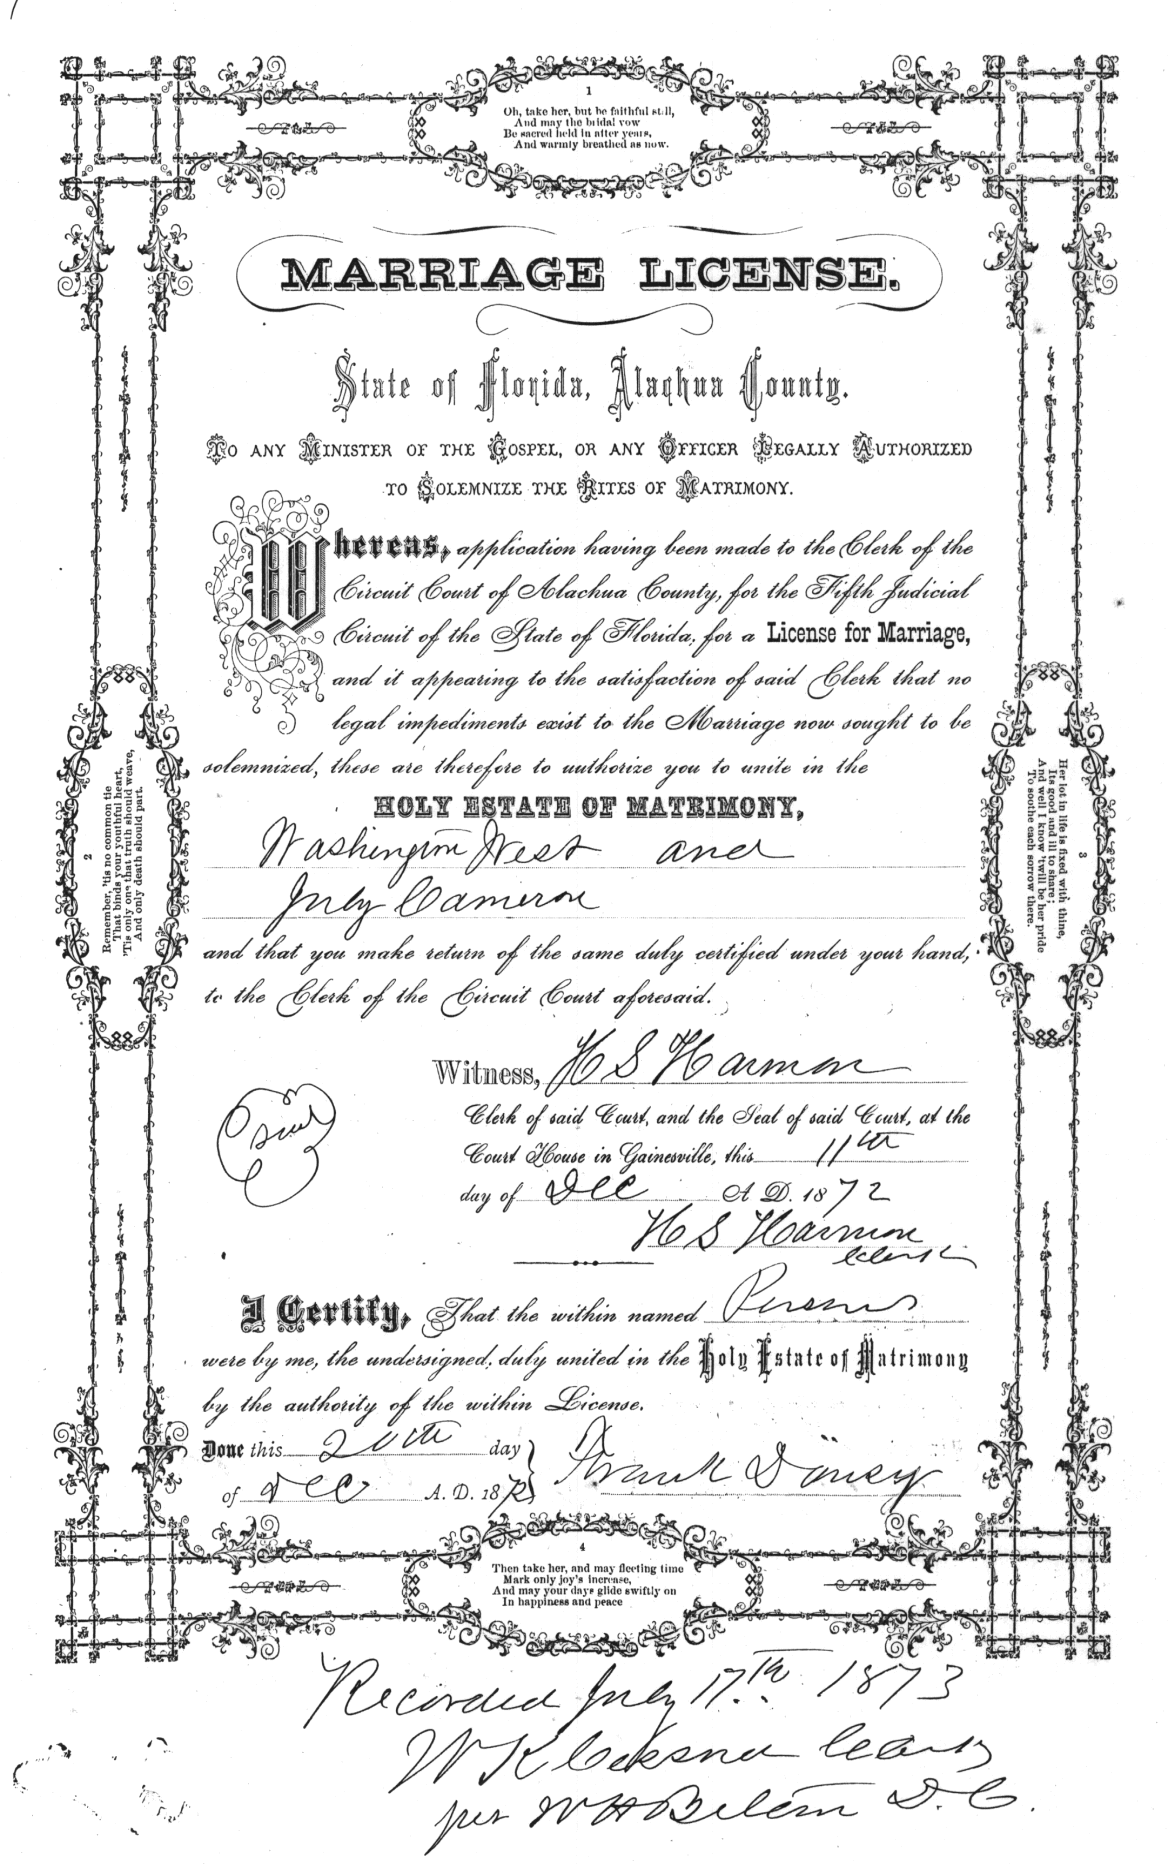 1
Oh, take her, but be faithful still,
And may the bridal vow
Be sacred held in after years,
And warmly breathed as now.
MARRIAGE LICENSE.
State of Florida, Alachua County.
TO ANY MINISTER OF THE GOSPEL, OR ANY OFFICER LEGALLY AUTHORIZED
TO SOLEMNIZE THE RITES OF MATRIMONY.
Whereas, application having been made to the Clerk of the
Circuit Court of Alachua County, for the Fifth Judicial
Circuit of the State of Florida, for a License for Marriage,
and it appearing to the satisfaction of said Clerk that no
legal impediments exist to the Marriage now sought to be
solemnized, these are therefore to authorize you to unite in the
HOLY ESTATE OF MATRIMONY,
Washington West and
July Cameron
and that you make return of the same duly certified under your hand,
to the Clerk of the Circuit Court aforesaid.
Witness, H S Harmon
Clerk of said Court, and the Seal of said Court, at the
Court House in Gainesville, this 11th
day of Dec A. D. 1872
H S Harmon
Clerk
Seal
I Certify, That the within named Persons
were by me, the undersigned, duly united in the Holy Estate of Matrimony
by the authority of the within License.
Done this 20th day
of Dec A. D. 1872
Frank
2
Remember, 'tis no common tie
That binds your youthful heart,
'Tis only one that truth should weave,
And only death should part.
3
Her lot in life is fixed with thine,
Its good and ill to share;
And well I know 'twill be her pride
To soothe each sorrow there.
4
Then take her, and may fleeting time
Mark only joy's increase,
And may your days glide swiftly on
In happiness and peace
Recorded July 17th 1873
W K Cessna Clerk
per W H Belton D. C.